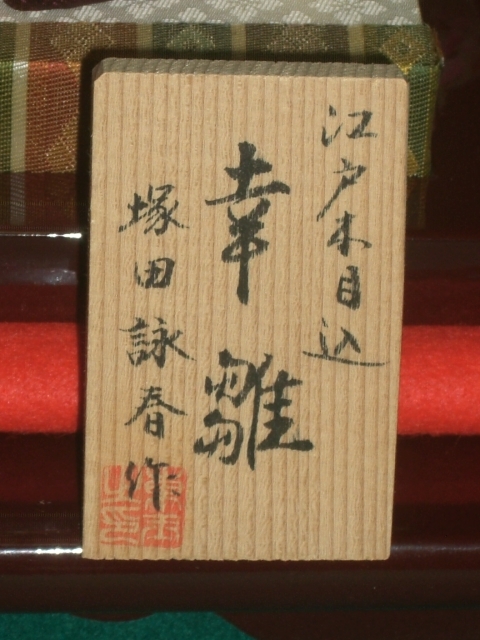 江戸木目込
幸雛
塚田詠春作